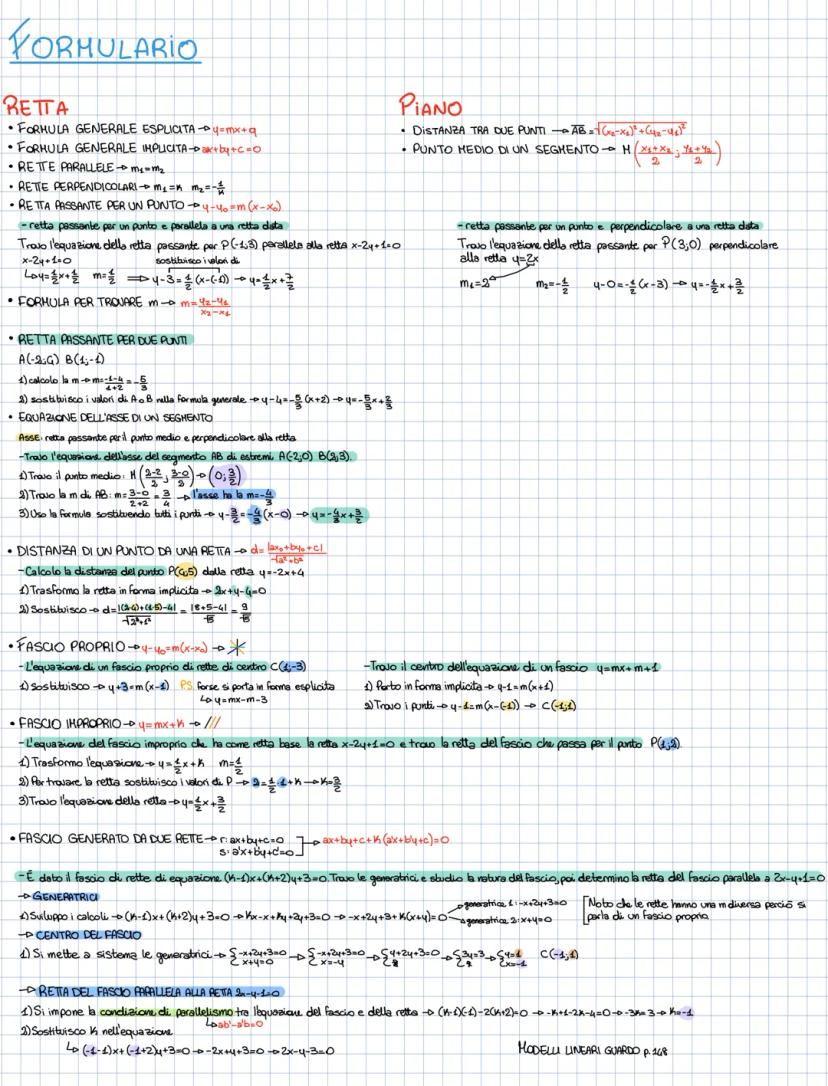 FORMULARIO
RETTA
• FORMULA GENERALE ESPLICITA → y=mx+q
• FORMULA GENERALE IMPLICITA → ax+by+c=0
• RETTE PARALLELE → m₁=m₂
• RETTE PERPENDICOLARI → m₁=k m₂=-1/k
• RETTA PASSANTE PER UN PUNTO → y-y₀=m(x-x₀)
- retta passante per un punto e parallela a una retta data
Trovo l'equazione della retta passante per P(-1;3) parallela alla retta x-2y+1=0
x-2y+1=0 sostituisco i valori di
↳ y=1/2x+1/2 m=1/2 ⟹ y-3=1/2(x-(-1)) → y=1/2x+7/2
• FORMULA PER TROVARE m → m=y₂-y₁/x₂-x₁
PIANO
• DISTANZA TRA DUE PUNTI → AB=√(x₂-x₁)²+(y₂-y₁)²
• PUNTO MEDIO DI UN SEGMENTO → M(x₁+x₂/2; y₁+y₂/2)
- retta passante per un punto e perpendicolare a una retta data
Trovo l'equazione della retta passante per P(3;0) perpendicolare
alla retta y=2x
m₁=2 m₂=-1/2 y-0=-1/2(x-3) → y=-1/2x+3/2
• RETTA PASSANTE PER DUE PUNTI
A(-2;4) B(1;-1)
1) calcolo la m → m=-1-4/1+2=-5/3
2) sostituisco i valori di A o B nella formula generale → y-4=-5/3(x+2) → y=-5/3x+2/3
• EQUAZIONE DELL'ASSE DI UN SEGMENTO
ASSE: retta passante per il punto medio e perpendicolare alla retta
- Trovo l'equazione dell'asse del segmento AB di estremi A(-2;0) B(2;3).
1) Trovo il punto medio: M(2-2/2; 3-0/2) → (0;3/2)
2) Trovo la m di AB: m=3-0/2+2=3/4 → l'asse ha la m=-4/3
3) Uso la formula sostituendo tutti i punti → y-3/2=-4/3(x-0) → y=-4/3x+3/2
• DISTANZA DI UN PUNTO DA UNA RETTA → d=|ax₀+by₀+c|/√a²+b²
- Calcolo la distanza del punto P(4;5) dalla retta y=-2x+4
1) Trasformo la retta in forma implicita → 2x+y-4=0
2) Sostituisco → d=|(2·4)+(1·5)-4|/√2²+1²=|8+5-4|/√5=9/√5
• FASCIO PROPRIO → y-y₀=m(x-x₀) →
- L'equazione di un fascio proprio di rette di centro C(1;-3)
1) Sostituisco → y+3=m(x-1) P.S. forse si porta in forma esplicita
↳ y=mx-m-3
- Trovo il centro dell'equazione di un fascio y=mx+m+1
1) Porto in forma implicita → y-1=m(x+1)
2) Trovo i punti → y-1=m(x-(-1)) → C(-1;1)
• FASCIO IMPROPRIO → y=mx+k → ///
- L'equazione del fascio improprio che ha come retta base la retta x-2y+1=0 e trovo la retta del fascio che passa per il punto P(1;2).
1) Trasformo l'equazione → y=1/2x+k m=1/2
2) Per trovare la retta sostituisco i valori di P → 2=1/2·1+k → k=3/2
3) Trovo l'equazione della retta → y=1/2x+3/2
• FASCIO GENERATO DA DUE RETTE → r: ax+by+c=0
s: a'x+b'y+c'=0 → ax+by+c+k(a'x+b'y+c)=0
- È dato il fascio di rette di equazione (k-1)x+(k+2)y+3=0. Trovo le generatrici e studio la natura del fascio, poi determino la retta del fascio parallela a 2x-y+1=0
→ GENERATRICI
1) Sviluppo i calcoli → (k-1)x+(k+2)y+3=0 → kx-x+ky+2y+3=0 → -x+2y+3+k(x+y)=0
generatrice 1: -x+2y+3=0
generatrice 2: x+y=0
[Noto che le rette hanno una m diversa perciò si
parla di un fascio proprio
→ CENTRO DEL FASCIO
1) Si mette a sistema le generatrici → {-x+2y+3=0 x+y=0 → {-x+2y+3=0 x=-y → {y+2y+3=0 → {3y=3 → {y=1 x=-1 C(-1;1)
→ RETTA DEL FASCIO PARALLELA ALLA RETTA 2x-y-1=0
1) Si impone la condizione di parallelismo tra l'equazione del fascio e della retta → (k-1)(-1)-2(k+2)=0 → -k+1-2k-4=0 → -3k=3 → k=-1
↳ ab'-a'b=0
2) Sostituisco k nell'equazione
↳ (-1-1)x+(-1+2)y+3=0 → -2x+y+3=0 → 2x-y-3=0
MODELLI LINEARI GUARDO p.148